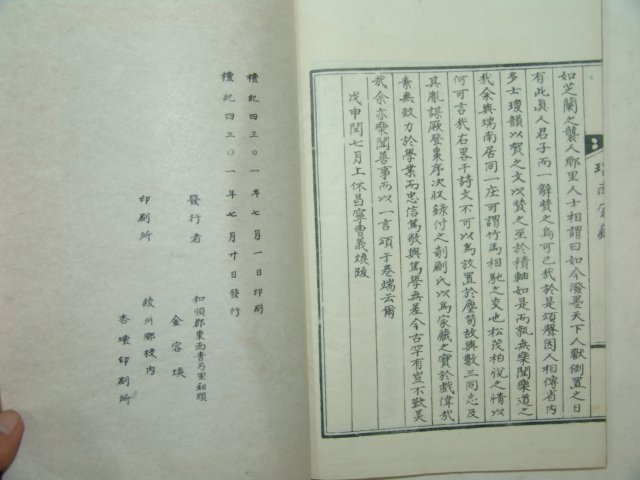 如芝蘭之襲人鄕里人士相謂曰如今潑墨天下人獸倒置之日
有此眞人君子而一辭贊之烏可已哉於是頌聲因人相傳省內
多士瓊韻以賀之文以贊之至於積軸如是而孰無樂聞樂道之
哉余與瑞南居同一庄可謂竹馬相馳之交也松茂柏悅之情以
何可言哉右畧干詩文不可以爲放置於塵笥故與數三同志及
其胤謀厥登棗序次收錄付之剞劂氏以爲家藏之寶於戲偉哉
素無致力於學業而忠信篤敬與篤學無差今古罕有豈不歎美
哉余亦樂聞善事而以一言頌于卷端云爾
戊申閏七月上休昌寧曺羲煥跋
瑞南家藏
檀紀四三〇一年七月一日印刷
檀紀四三〇一年七月廿日發行
發行者
和順郡東面靑乃里劲頭
金容煥
印刷所
綾州鄕校內
杏壇印刷所